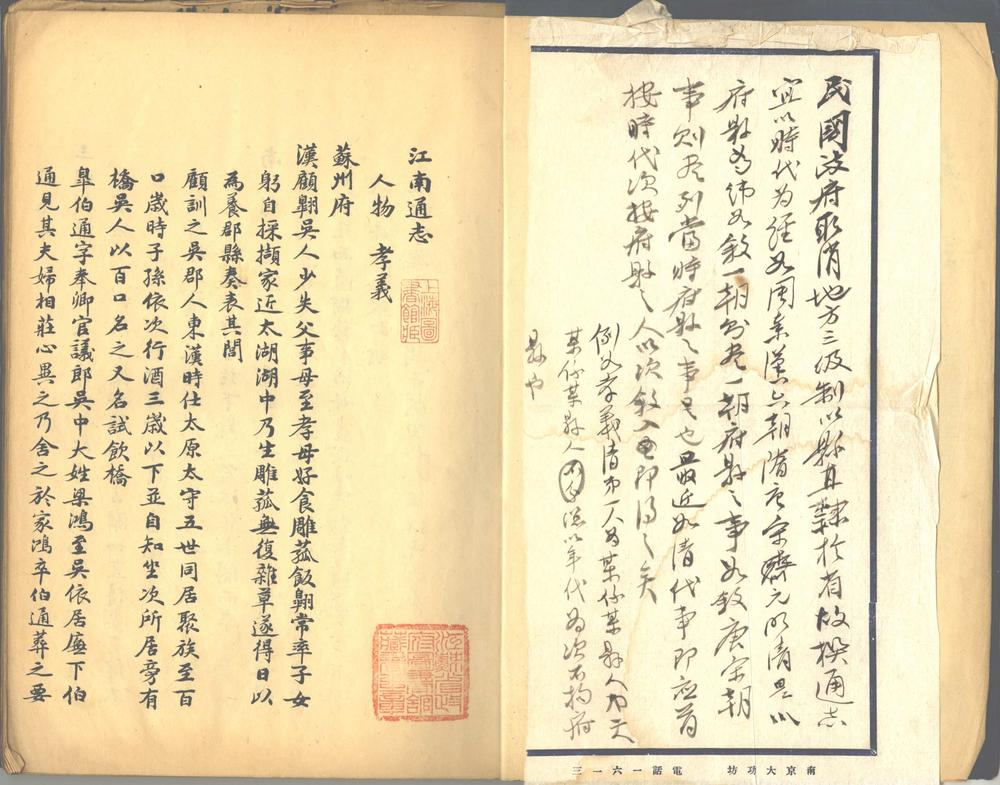 民國政府取消地方三級制以縣直隸於省故撰通志
宜以時代為經如周秦漢六朝隋唐宋元明清是以
府縣為緯如敘一朝即盡一朝府縣之事如敘唐宋朝
事則盡列當時府縣之事是也最近如清代事即應首
按時代次按府縣之人以次敘入即得之矣
例如孝義清第一人為某係某縣人
某係某縣人總以年代為次不拘府
縣也
南京大功坊 電話一六一三
江南通志
人物 孝義
上海圖書館藏
蘇州府
漢顧翺吳人少失父事母至孝母好食雕菰飯翺常率子女
躬自採擷家近太湖湖中乃生雕菰無復雜草遂得日以
為養郡縣奏表其閭
顧訓之吳郡人東漢時仕太原太守五世同居聚族至百
口歲時子孫依次行酒三歲以下並自知坐次所居旁有
橋吳人以百口名之又名試飲橋
皐伯通字奉卿官議郎吳中大姓梁鴻至吳依居廡下伯
通見其夫婦相莊心異之乃舍之於家鴻卒伯通葬之要